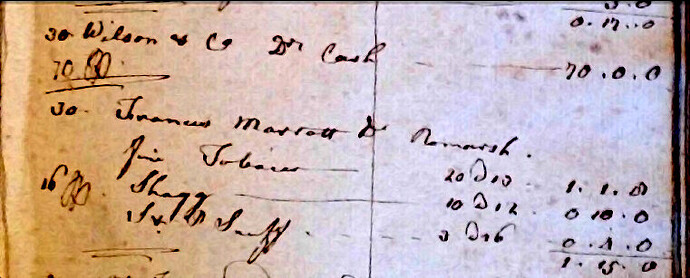 0.17.0
30 Wilson & Co Dr Cash 70.0.0
70
30 Francis Marratt Dr Romarsh.
fine Tobacco 20 @ 13. 1.1.8
16 Shagg 10 @ 12 0 10.0
Snuff. 3 @ 16 0.4.0
1.15.8